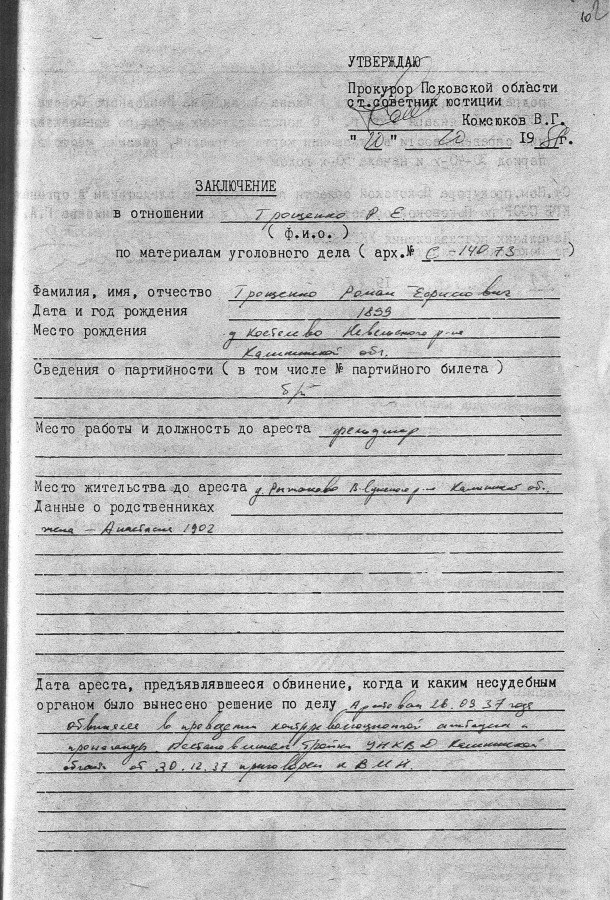 102
УТВЕРЖДАЮ
Прокурор Псковской области
ст.советник юстиции
Комсюков В.Г.
" 20 " 1989г.
ЗАКЛЮЧЕНИЕ
в отношении Трощенко Р. Е.
( ф.и.о. )
по материалам уголовного дела ( арх.№ С-14073 )
Фамилия, имя, отчество Трощенко Роман Ефимович
Дата и год рождения 1899
Место рождения д Костелево Невельского р-на
Калининской обл.
Сведения о партийности ( в том числе № партийного билета )
б/п
Место работы и должность до ареста
Место жительства до ареста д. В-Лукского р-на Калинин. обл.
Данные о родственниках
жена – Анастасия 1902
Дата ареста, предъявлявшееся обвинение, когда и каким несудебным
органом было вынесено решение по делу Арестован 26.09 37 года
обвинялся в проведении контрреволюционной агитации и
пропаганды. Постановлением Тройки УНКВД Калининской
области от 30.12.37 приговорен к ВМН.